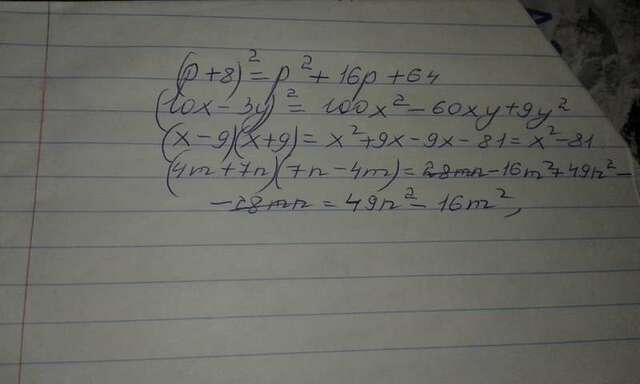 (p+8)² = p² + 16p + 64
(10x - 3y)² = 100x² - 60xy + 9y²
(x-9)(x+9) = x² + 9x - 9x - 81 = x² - 81
(4m+7n)(7n-4m) = 28mn - 16m² + 49n² -
- 28mn = 49n² - 16m²,